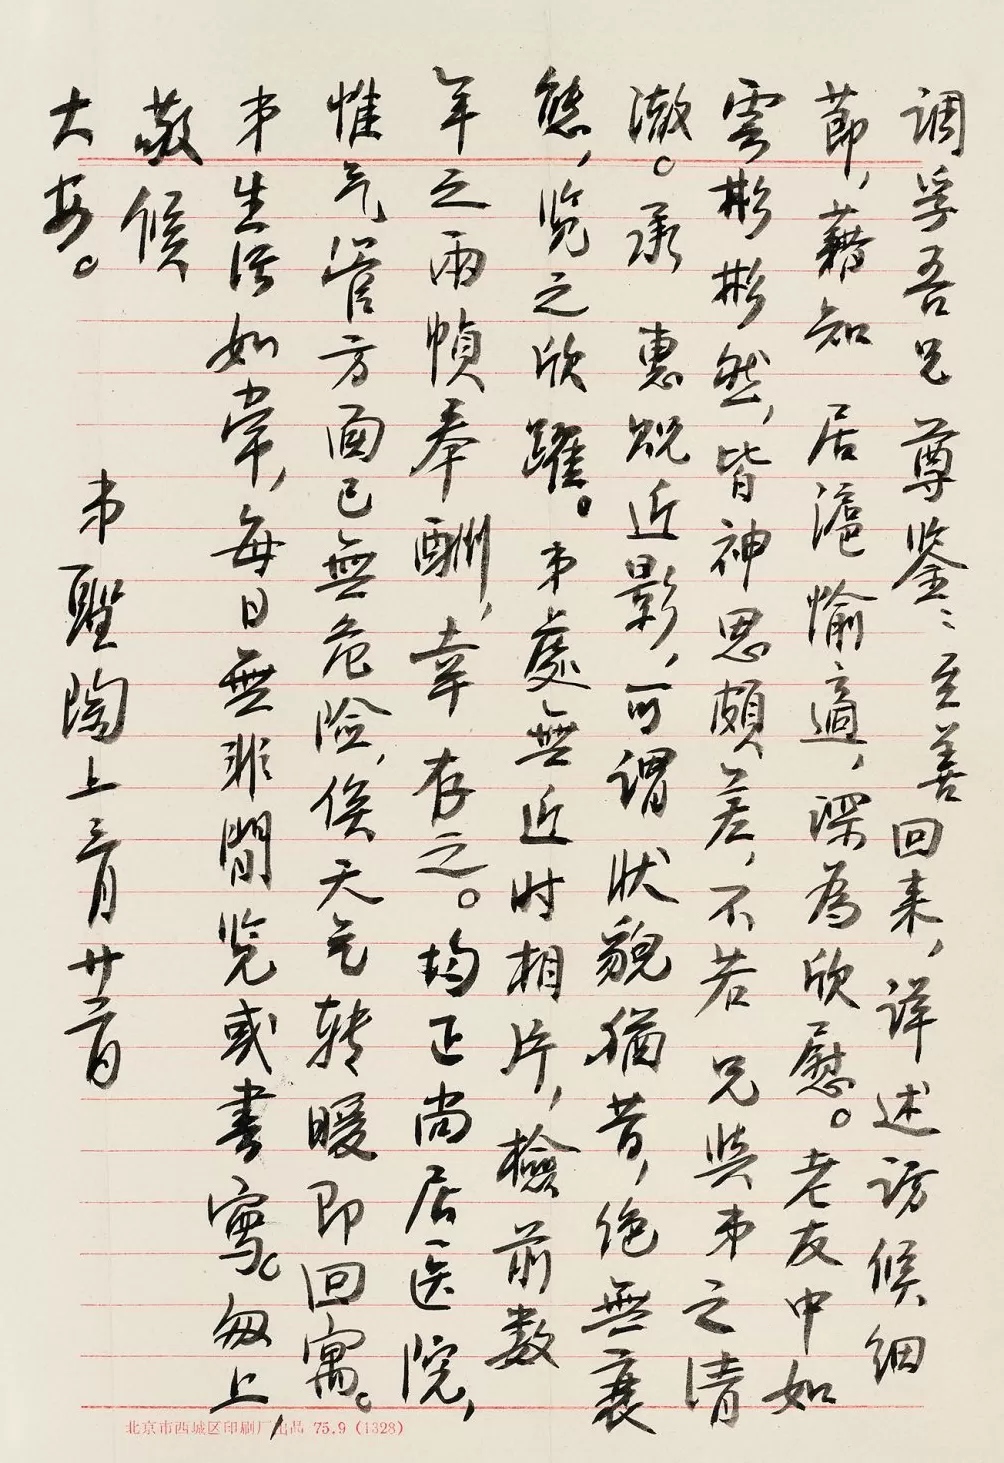 调孚吾兄尊鉴：至善回来，详述访候细
節，藉知 居滬愉適，深為欣慰。老友中如
雲彬彬然，皆神思頗差，不若 兄與弟之清
澈。承 惠贶近影，可謂狀貌猶昔，绝無衰
態，览之欣躍。弟處無近时相片，檢前数
年之兩幀奉酬，幸 存之。均正尚居医院，
惟气管方面已無危险，俟天气转暖即回寓。
弟生活如常，每日無非閒览或書寫。匆上，
敬候
大安。
弟聖陶上 三月廿二日
北京市西城区印刷厂出品 75.9 (1328)